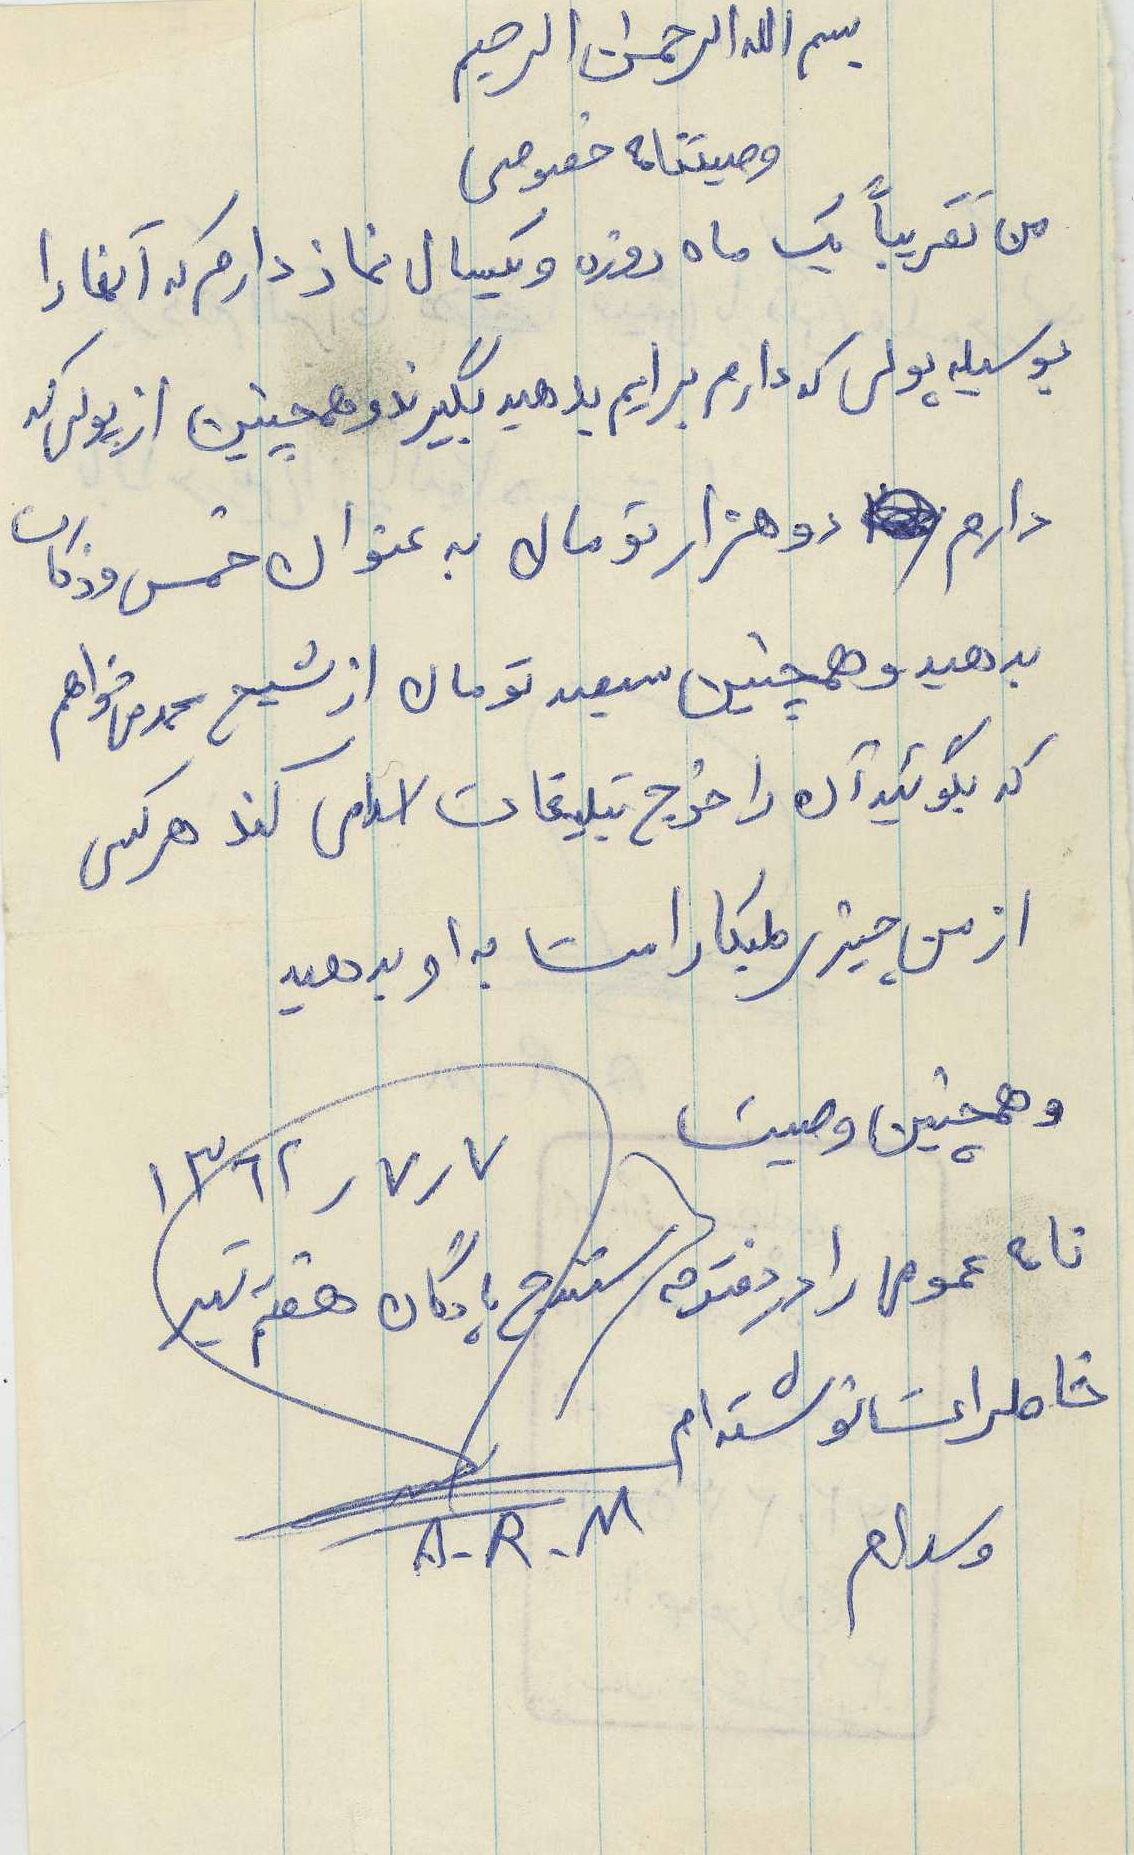 بسم الله الرحمن الرحیم
وصیتنامه خصوصی
من تقریباً یک ماه روزه و یکسال نماز دارم که آنها را
بوسیله پولی که دارم برایم بدهید بگیرند و همچنین از پولی که
دارم دو هزار تومان به عنوان خمس و زکات
بدهید و همچنین سیصد تومان از شیخ محمد می خواهم
که بگوئید آن را خرج تبلیغات اسلامی کند هر کس
از من چیزی طلبکار است به او بدهید
و همچنین وصیت
۷ ر ۷ ر ۱۳۶۲
نامه عمومی را در دفترچه
پادگان هفتم تیر
خاطراتمان نوشته ام
A-R-M
وسلام